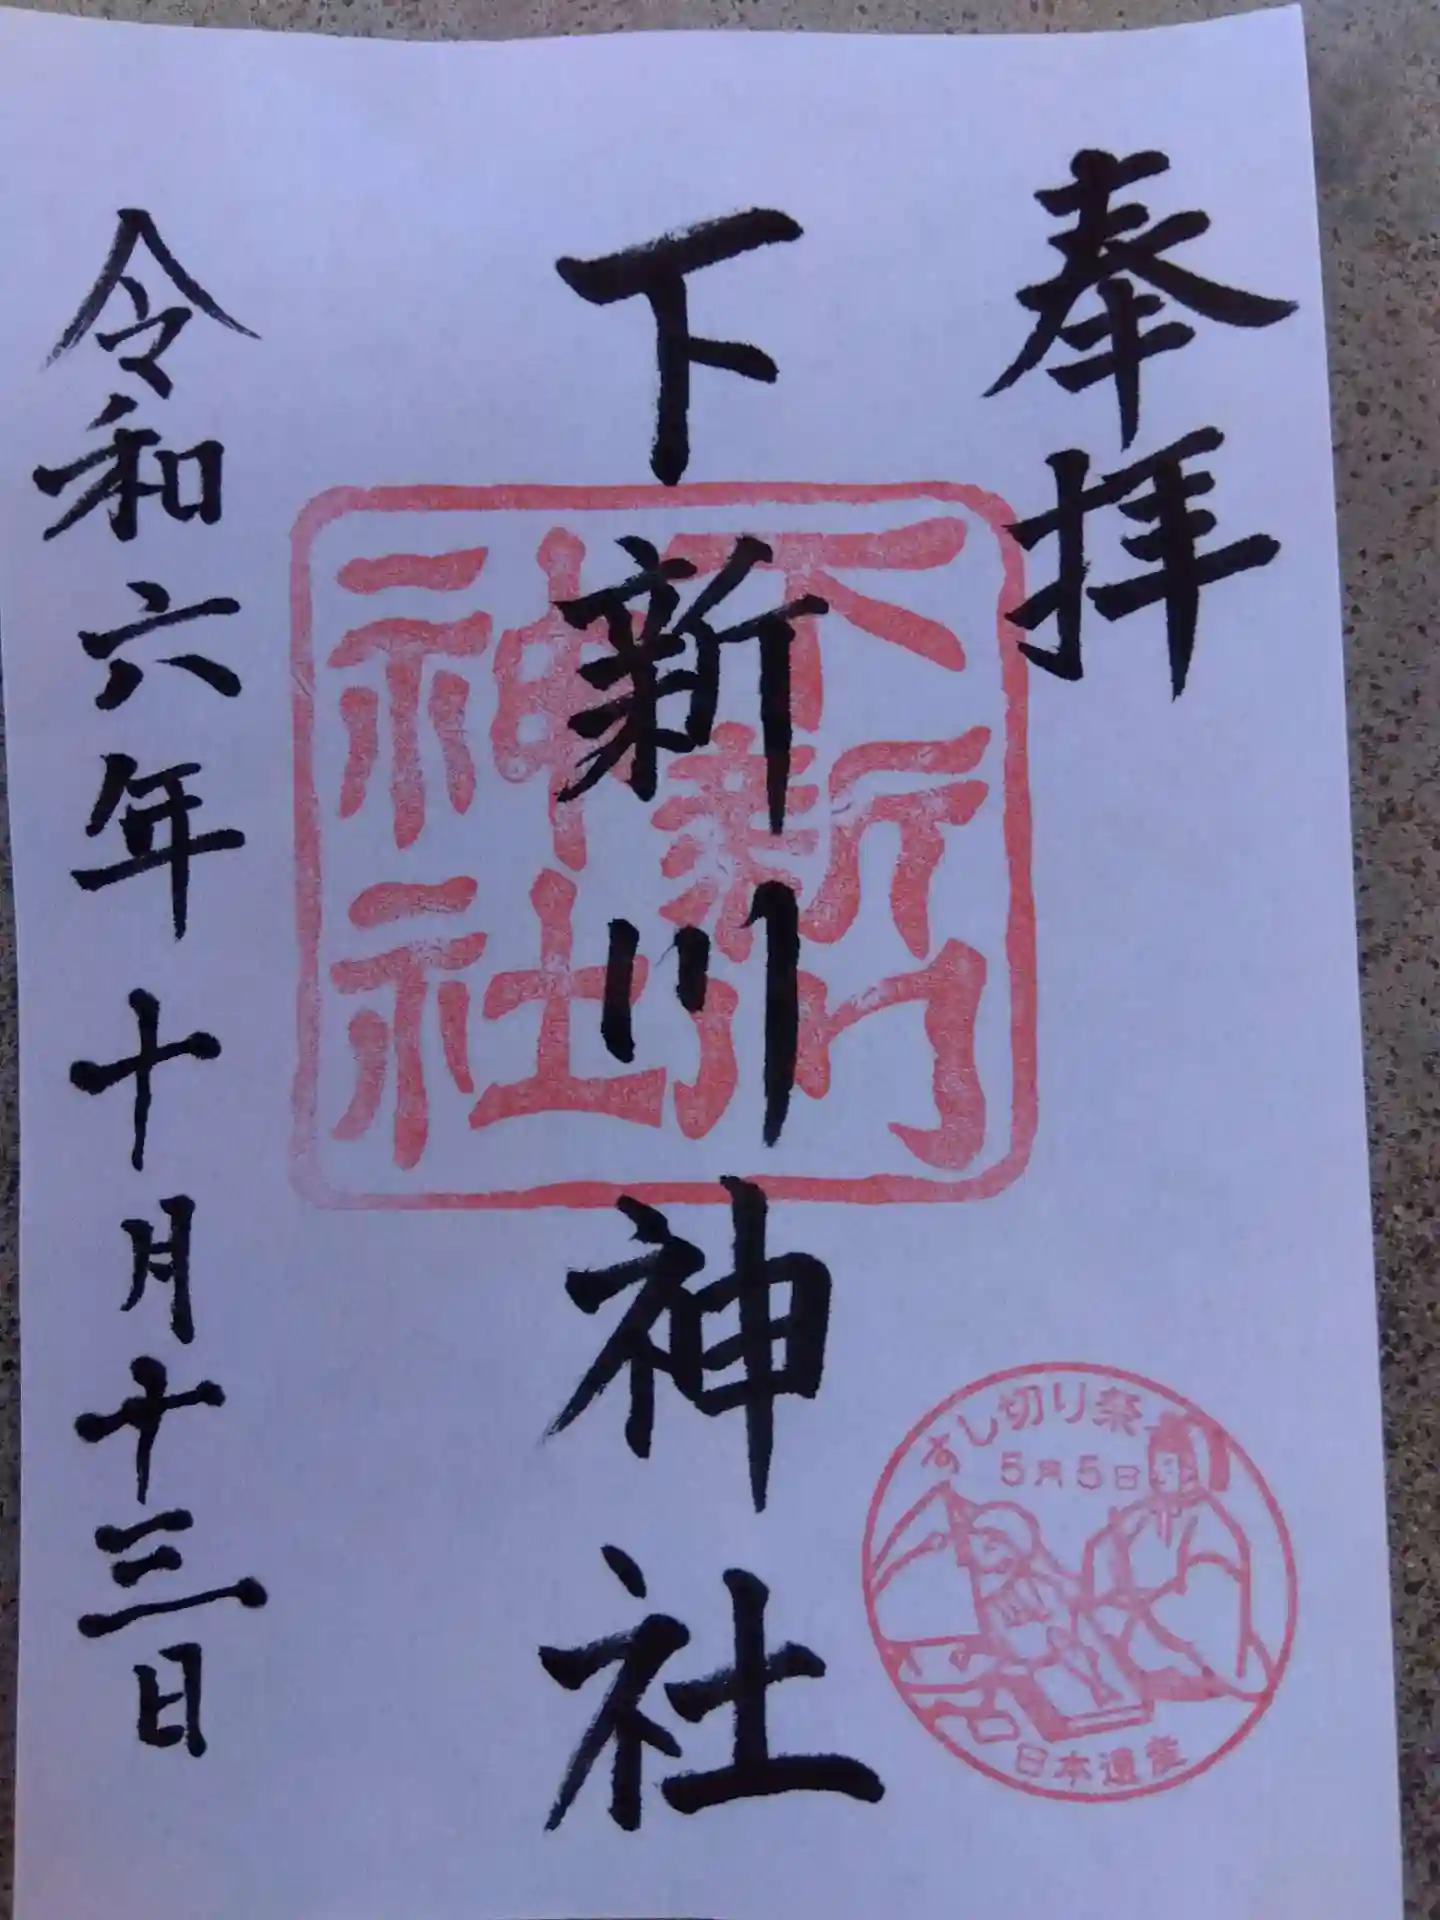 奉拝
下新川神社
令和六年十月十三日
下新川
神社
すし切り祭
5月5日
日本遺産